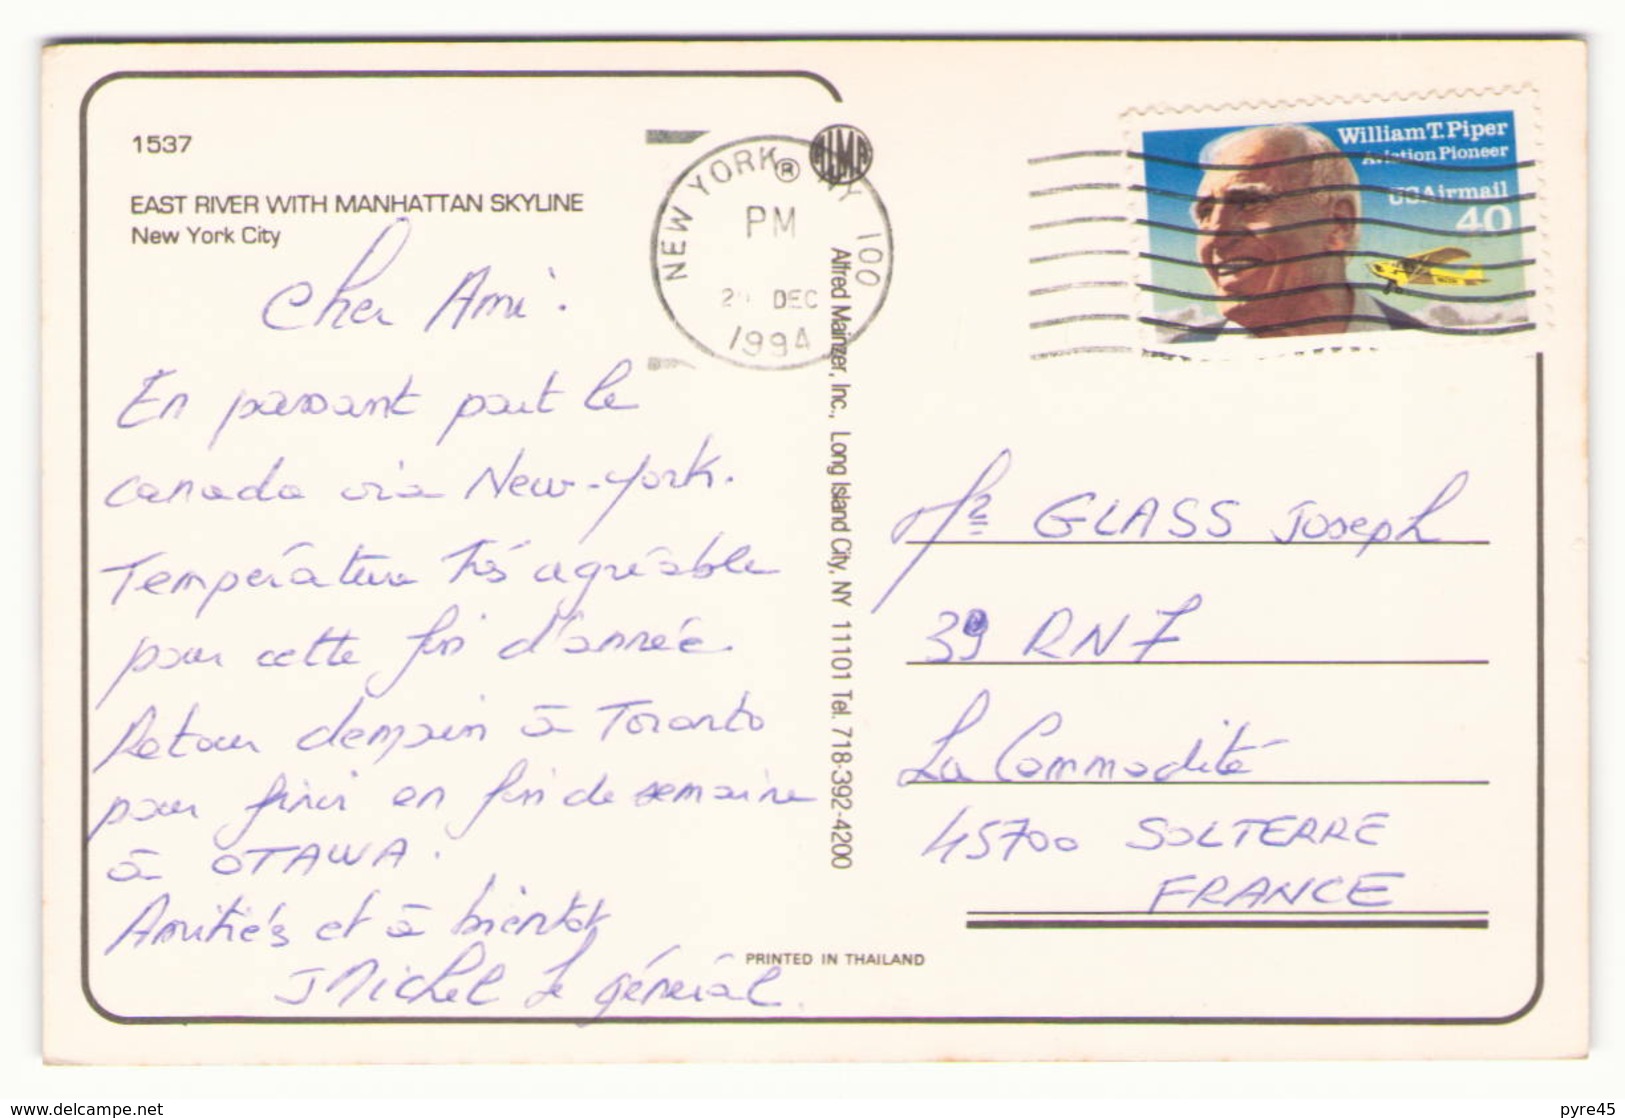 1537
EAST RIVER WITH MANHATTAN SKYLINE
New York City
Cher Ami.
En passant pour le
canada via New-york.
Température très agréable
pour cette fin d'année
Retour demain à Toronto
pour finir en fin de semaine
à OTAWA.
Amitiés et à bientôt
JMichel le général.
NEW YORK NY 100
PM
DEC
1994
ALMA
®
Alfred Mainzer, Inc., Long Island City, NY 11101 Tel. 718-392-4200
PRINTED IN THAILAND
William T. Piper
Aviation Pioneer
USAirmail
40
Mr GLASS Joseph
39 RN7
La Commodité
45700 SOLTERRE
FRANCE
www.delcampe.net
pyre45